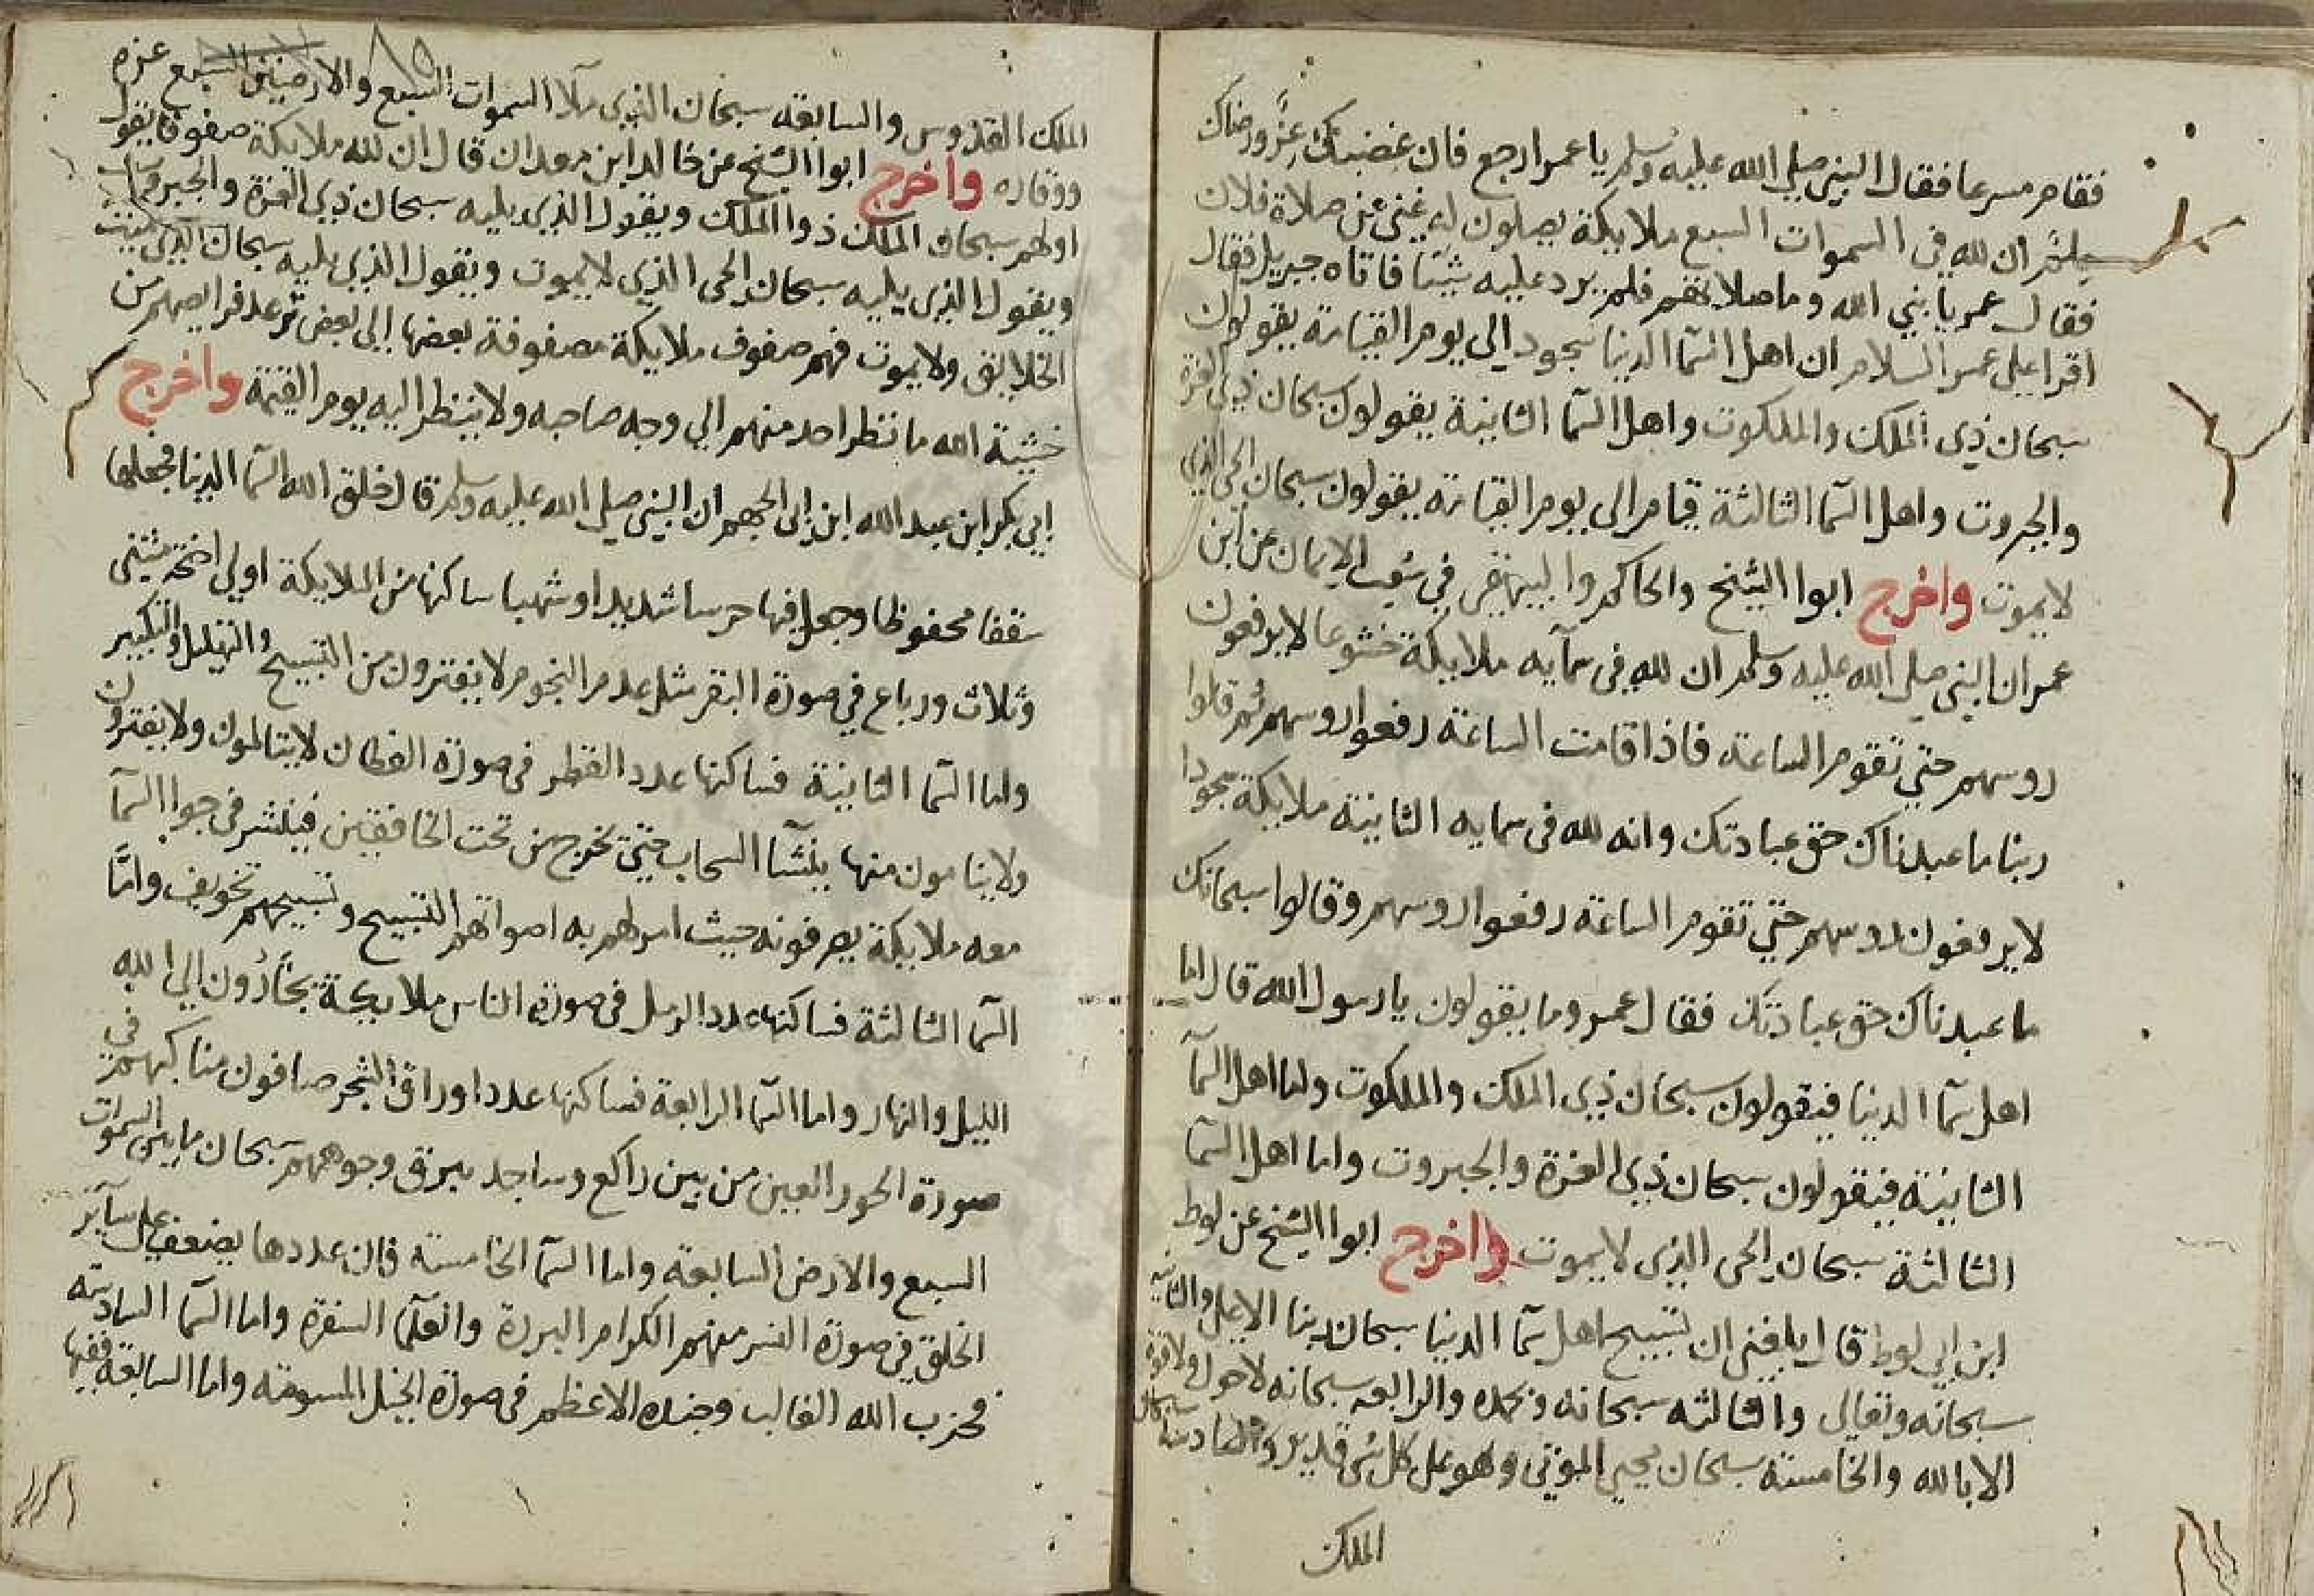 فقام مسرعا فقال النبي صلي الله عليه وسلم يا عمر ارجع فان غضبك عز ورضاك
ان لله في السموات السبع ملايكة يصلون له غني عن صلاة فلان
فقال عمر يا نبي الله وما صلاتهم فلم يرد عليه شيئا فاتاه جبريل فقال
اقرا علي عمر السلام ان اهل السما الدنيا سجود الي يوم القيامة يقولون
سبحان ذي الملك والملكوت واهل السما الثانية يقولون سبحان ذي العزة
والجبروت واهل السما الثالثة قيام الى يوم القيامة يقولون سبحان الحي الذي
لا يموت واخرج ابوا الشيخ والحاكم والبيهقي في شعب الايمان عن ابن
عمر ان النبي صلي الله عليه وسلم ان لله في سمآيه ملايكة خشوعا لا يرفعون
روسهم حتي تقوم الساعة فاذا قامت الساعة رفعوا روسهم ثم قالوا
ربنا ما عبدناك حق عبادتك وانه لله في سمايه الثانية ملايكة سجودا
لا يرفعون روسهم حتي تقوم الساعة رفعوا روسهم وقالوا سبحانك
ما عبدناك حق عبادتك فقال عمر وما يقولون يا رسول الله قال اما
اهل سما الدنيا فيقولون سبحان ذي الملك والملكوت واما اهل السمآ
الثانية فيقولون سبحان ذي العزة والجبروت واما اهل السما
الثالثة سبحان الحي الذي لا يموت واخرج ابوا الشيخ عن لوط
ابن ابي لوط قال بلغني ان تسبيح اهل سما الدنيا سبحان ربنا الاعلي والثانية
سبحانه وتعالي والثالثه سبحانه وبحمده والرابعه سبحانه لا حول ولا قوة
الا بالله والخامسة سبحان محيي الموتي وهو علي كل شي قدير والسادسة سبحان
الملك
الملك القدوس والسابعه سبحان الذي ملآ السموات السبع والارضين السبع عزه
ووقاره واخرج ابوا الشيخ عن خالد ابن معدان قال ان لله ملايكة صفوفا يقول
اولهم سبحان الملك ذوا الملك ويقول الذي يليه سبحان ذي العزة والجبروت
ويقول الذي يليه سبحان الحي الذي لا يموت ويقول الذي يليه سبحان الذي يميت
الخلايق ولا يموت فهم صفوف ملايكة مصفوفة بعضها الي بعض ترعد فرايصهم من
خشية الله ما نظر احد منهم الي وجه صاحبه ولا ينظر اليه يوم القيمة واخرج
ابي بكر ابن عبد الله ابن ابي الجهم ان النبي صلي الله عليه وسلم قال خلق الله السما الدنيا فجعلها
سقفا محفوظا وجعل فيها حرسا شديدا وشهبا ساكنها من الملايكة اولي اجنحة مثني
وثلاث ورباع في صورة البقر مثل عدد النجوم لا يفترون من التسبيح والتهليل والتكبير
واما السما الثانية فساكنها عدد القطر في صورة العقبان لا يتالمون ولا يفترون
ولا ينامون منها ينشآ السحاب حتي تخرج من تحت الخافقين فينشر في جوا السمآ
معه ملايكة يصرفونه حيث امر لهم به اصواتهم التسبيح وتسبيحهم تخويف وامّا
السما الثالثة فساكنها عدد الرمل في صورة الناس ملايكة يجأرون الي الله
الليل والنهار واما السما الرابعة فساكنها عدد اوراق الشجر صافون مناكبهم في
صورة الحور العين من بين راكع وساجد يبرق وجوههم سبحان ما بين السموات
السبع والارض السابعة واما السما الخامسة فان عددها يضعف علي سآير
الخلق في صورة النسر منهم الكرام البررة والعلمآ السفرة واما السما السادسة
فحزب الله الغالب وجنده الاعظم في صورة الخيل المسومة واما السابعة ففيها